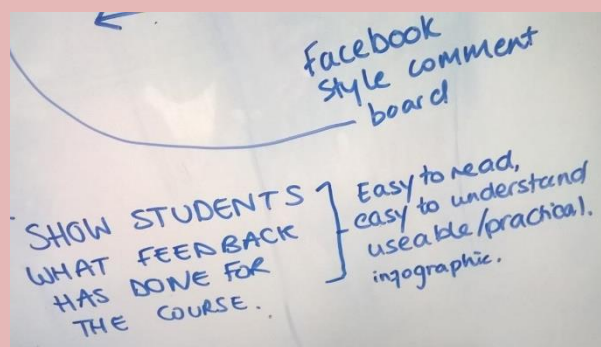 Facebook
style comment
board
SHOW STUDENTS
WHAT FEEDBACK
HAS DONE FOR
THE COURSE.
Easy to read,
easy to understand
useable/practical.
infographic.